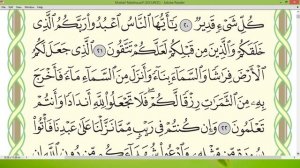 كُلِّ شَىْءٍ قَدِيرٌ ٢٠ يَٰٓأَيُّهَا ٱلنَّاسُ ٱعْبُدُوا۟ رَبَّكُمُ ٱلَّذِى
خَلَقَكُمْ وَٱلَّذِينَ مِن قَبْلِكُمْ لَعَلَّكُمْ تَتَّقُونَ ٢١ ٱلَّذِى جَعَلَ لَكُمُ
ٱلْأَرْضَ فِرَٰشًا وَٱلسَّمَآءَ بِنَآءً وَأَنزَلَ مِنَ ٱلسَّمَآءِ مَآءً فَأَخْرَجَ
بِهِۦ مِنَ ٱلثَّمَرَٰتِ رِزْقًا لَّكُمْ فَلَا تَجْعَلُوا۟ لِلَّهِ أَندَادًا وَأَنتُمْ
تَعْلَمُونَ ٢٢ وَإِن كُنتُمْ فِى رَيْبٍ مِّمَّا نَزَّلْنَا عَلَىٰ عَبْدِنَا فَأْتُوا۟